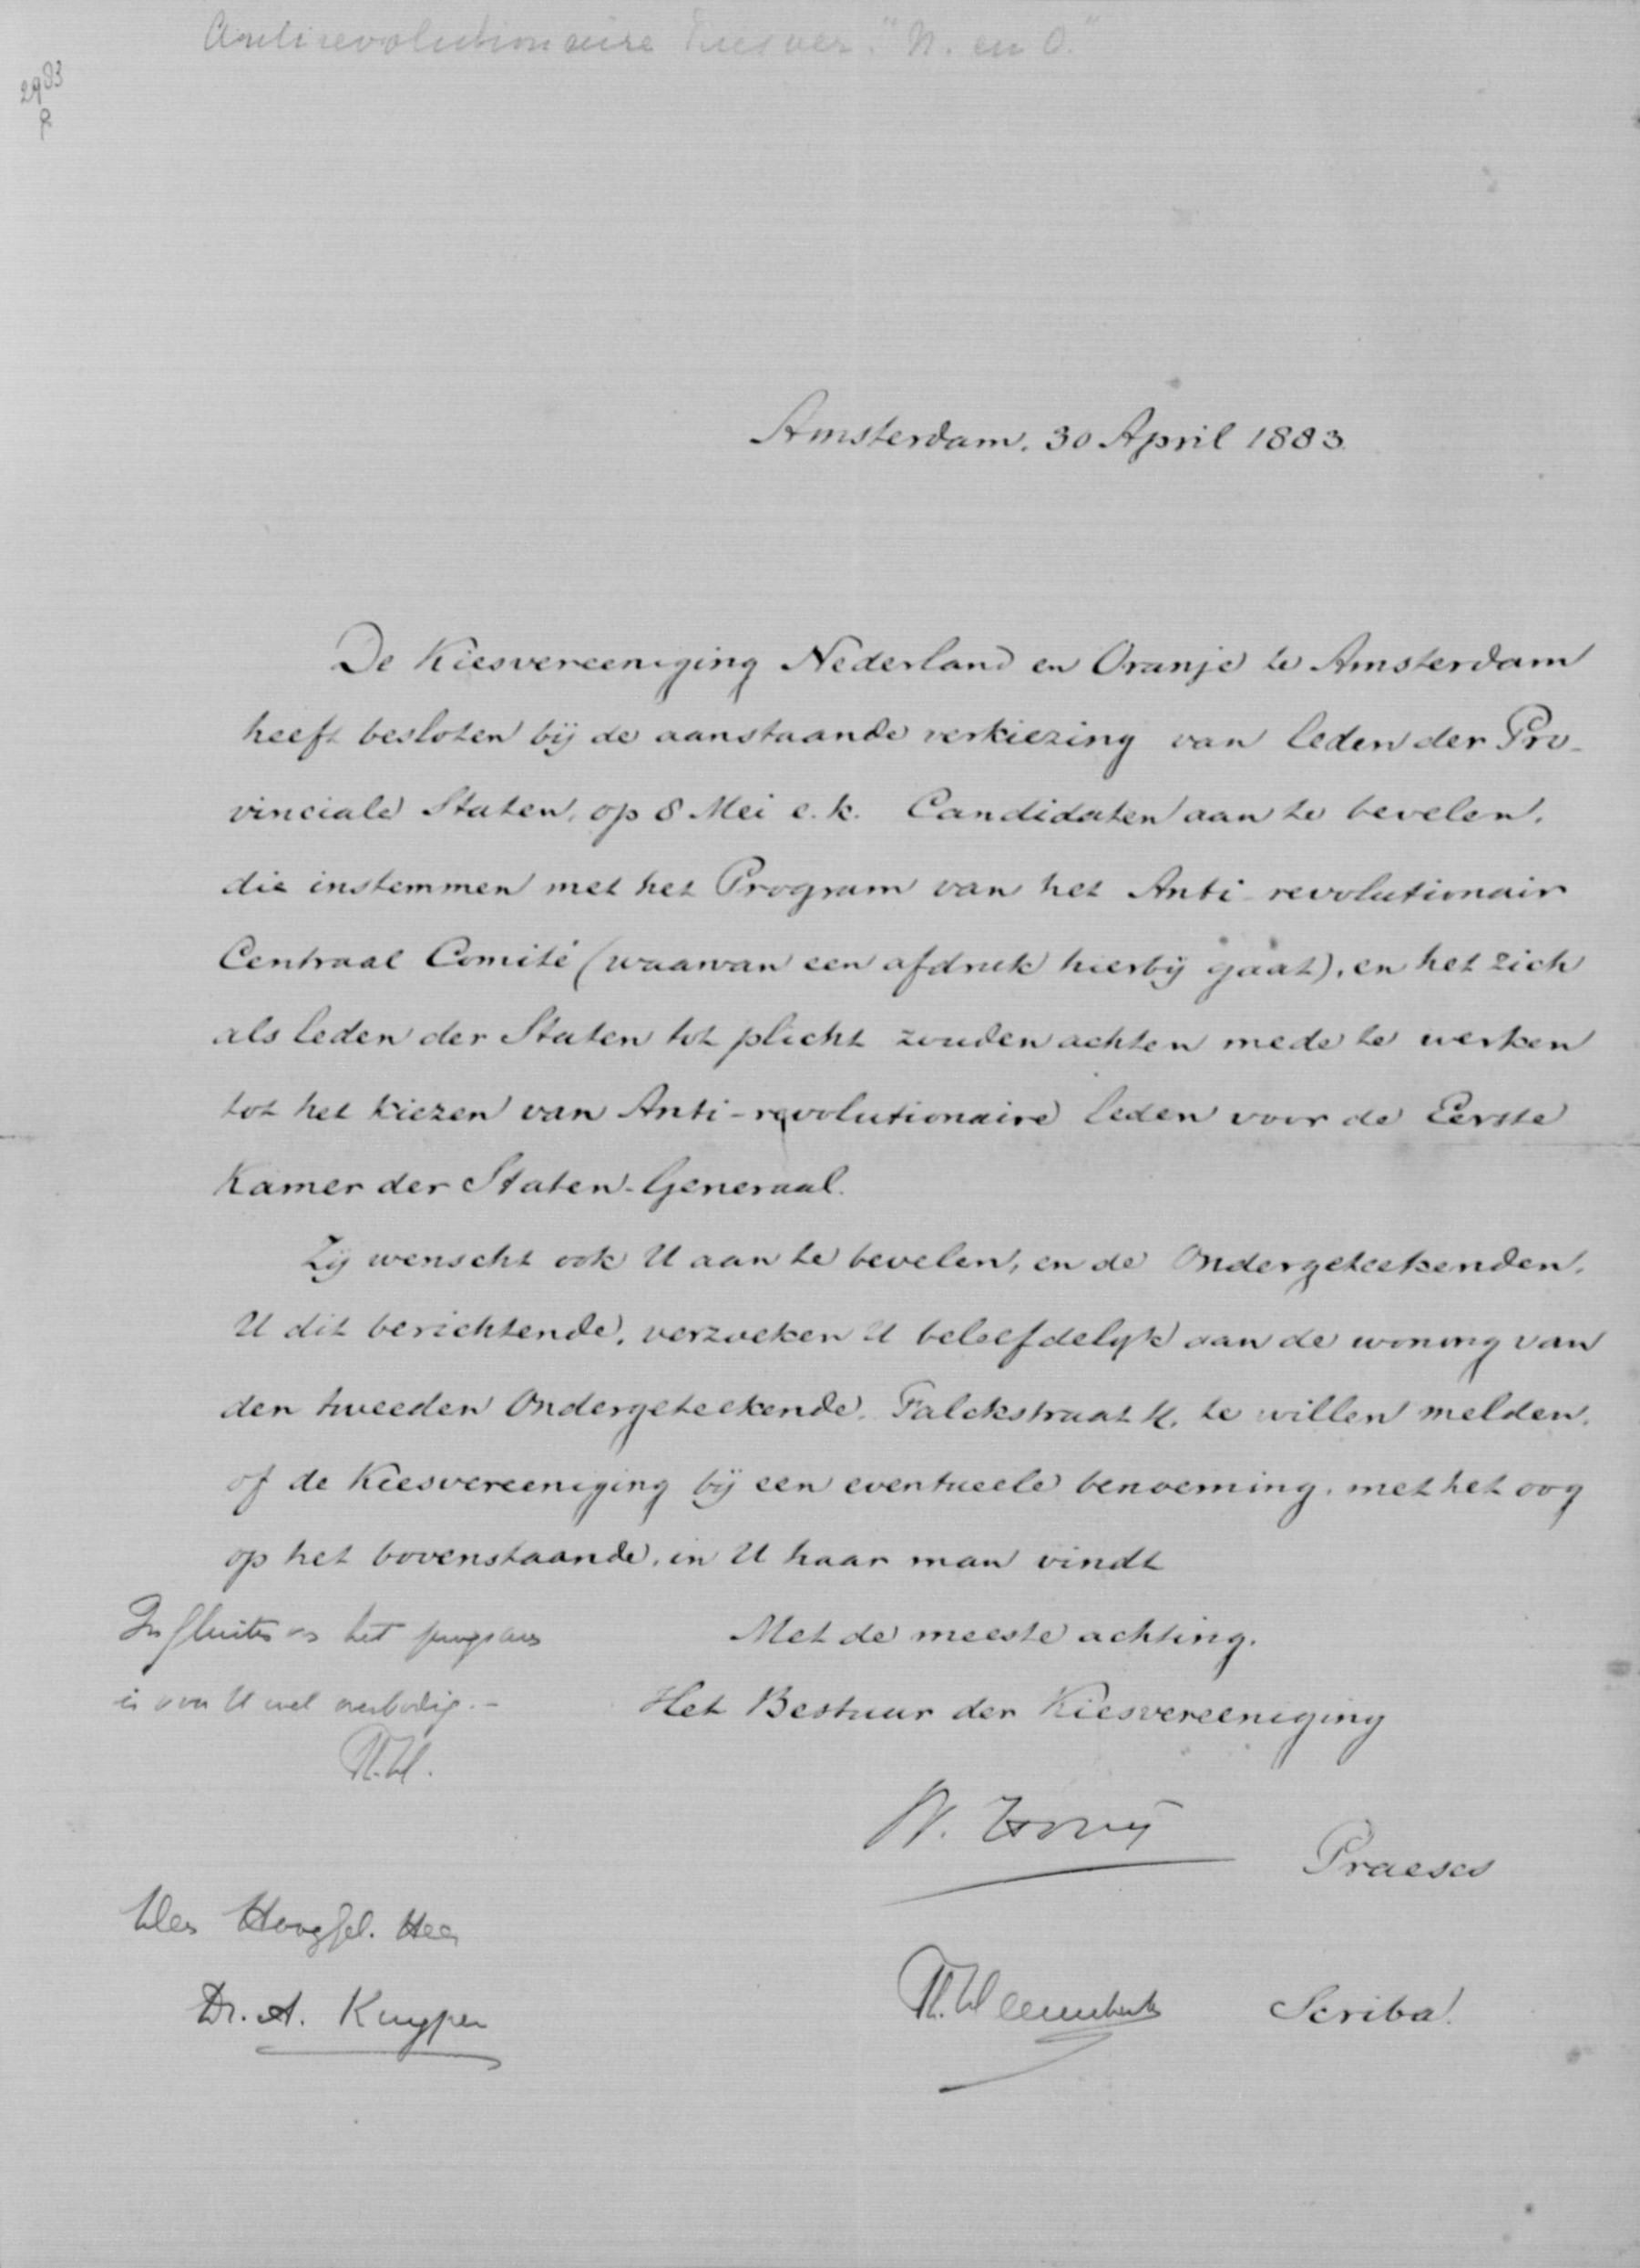 Antirevolutionaire Kiesver. "N. en O."
2983
Amsterdam, 30 April 1883.
De Kiesvereeniging Nederland en Oranje te Amsterdam
heeft besloten bij de aanstaande verkiezing van leden der Pro-
vinciale Staten, op 8 Mei e.k. Candidaten aan te bevelen,
die instemmen met het Program van het Anti-revolutionair
Centraal Comité (waarvan een afdruk hierbij gaat), en het zich
als leden der Staten tot plicht zouden achten mede te werken
tot het kiezen van Anti-revolutionaire leden voor de Eerste
Kamer der Staten-Generaal.
Zij wenscht ook U aan te bevelen, en de Ondergeteekenden,
U dit berichtende, verzoeken U beleefdelijk aan de woning van
den tweeden Ondergeteekende, Falckstraat te willen melden,
of de Kiesvereeniging bij een eventueele benoeming, met het oog
op het bovenstaande, in U haar man vindt
Insluiten van het program
is voor U wel overbodig.-
Th.H.
Met de meeste achting,
Het Bestuur der Kiesvereeniging
W. Hovy
Praeses
Den Hooggel. Heer
Dr. A. Kuyper
Th. Heemskerk
Scriba.